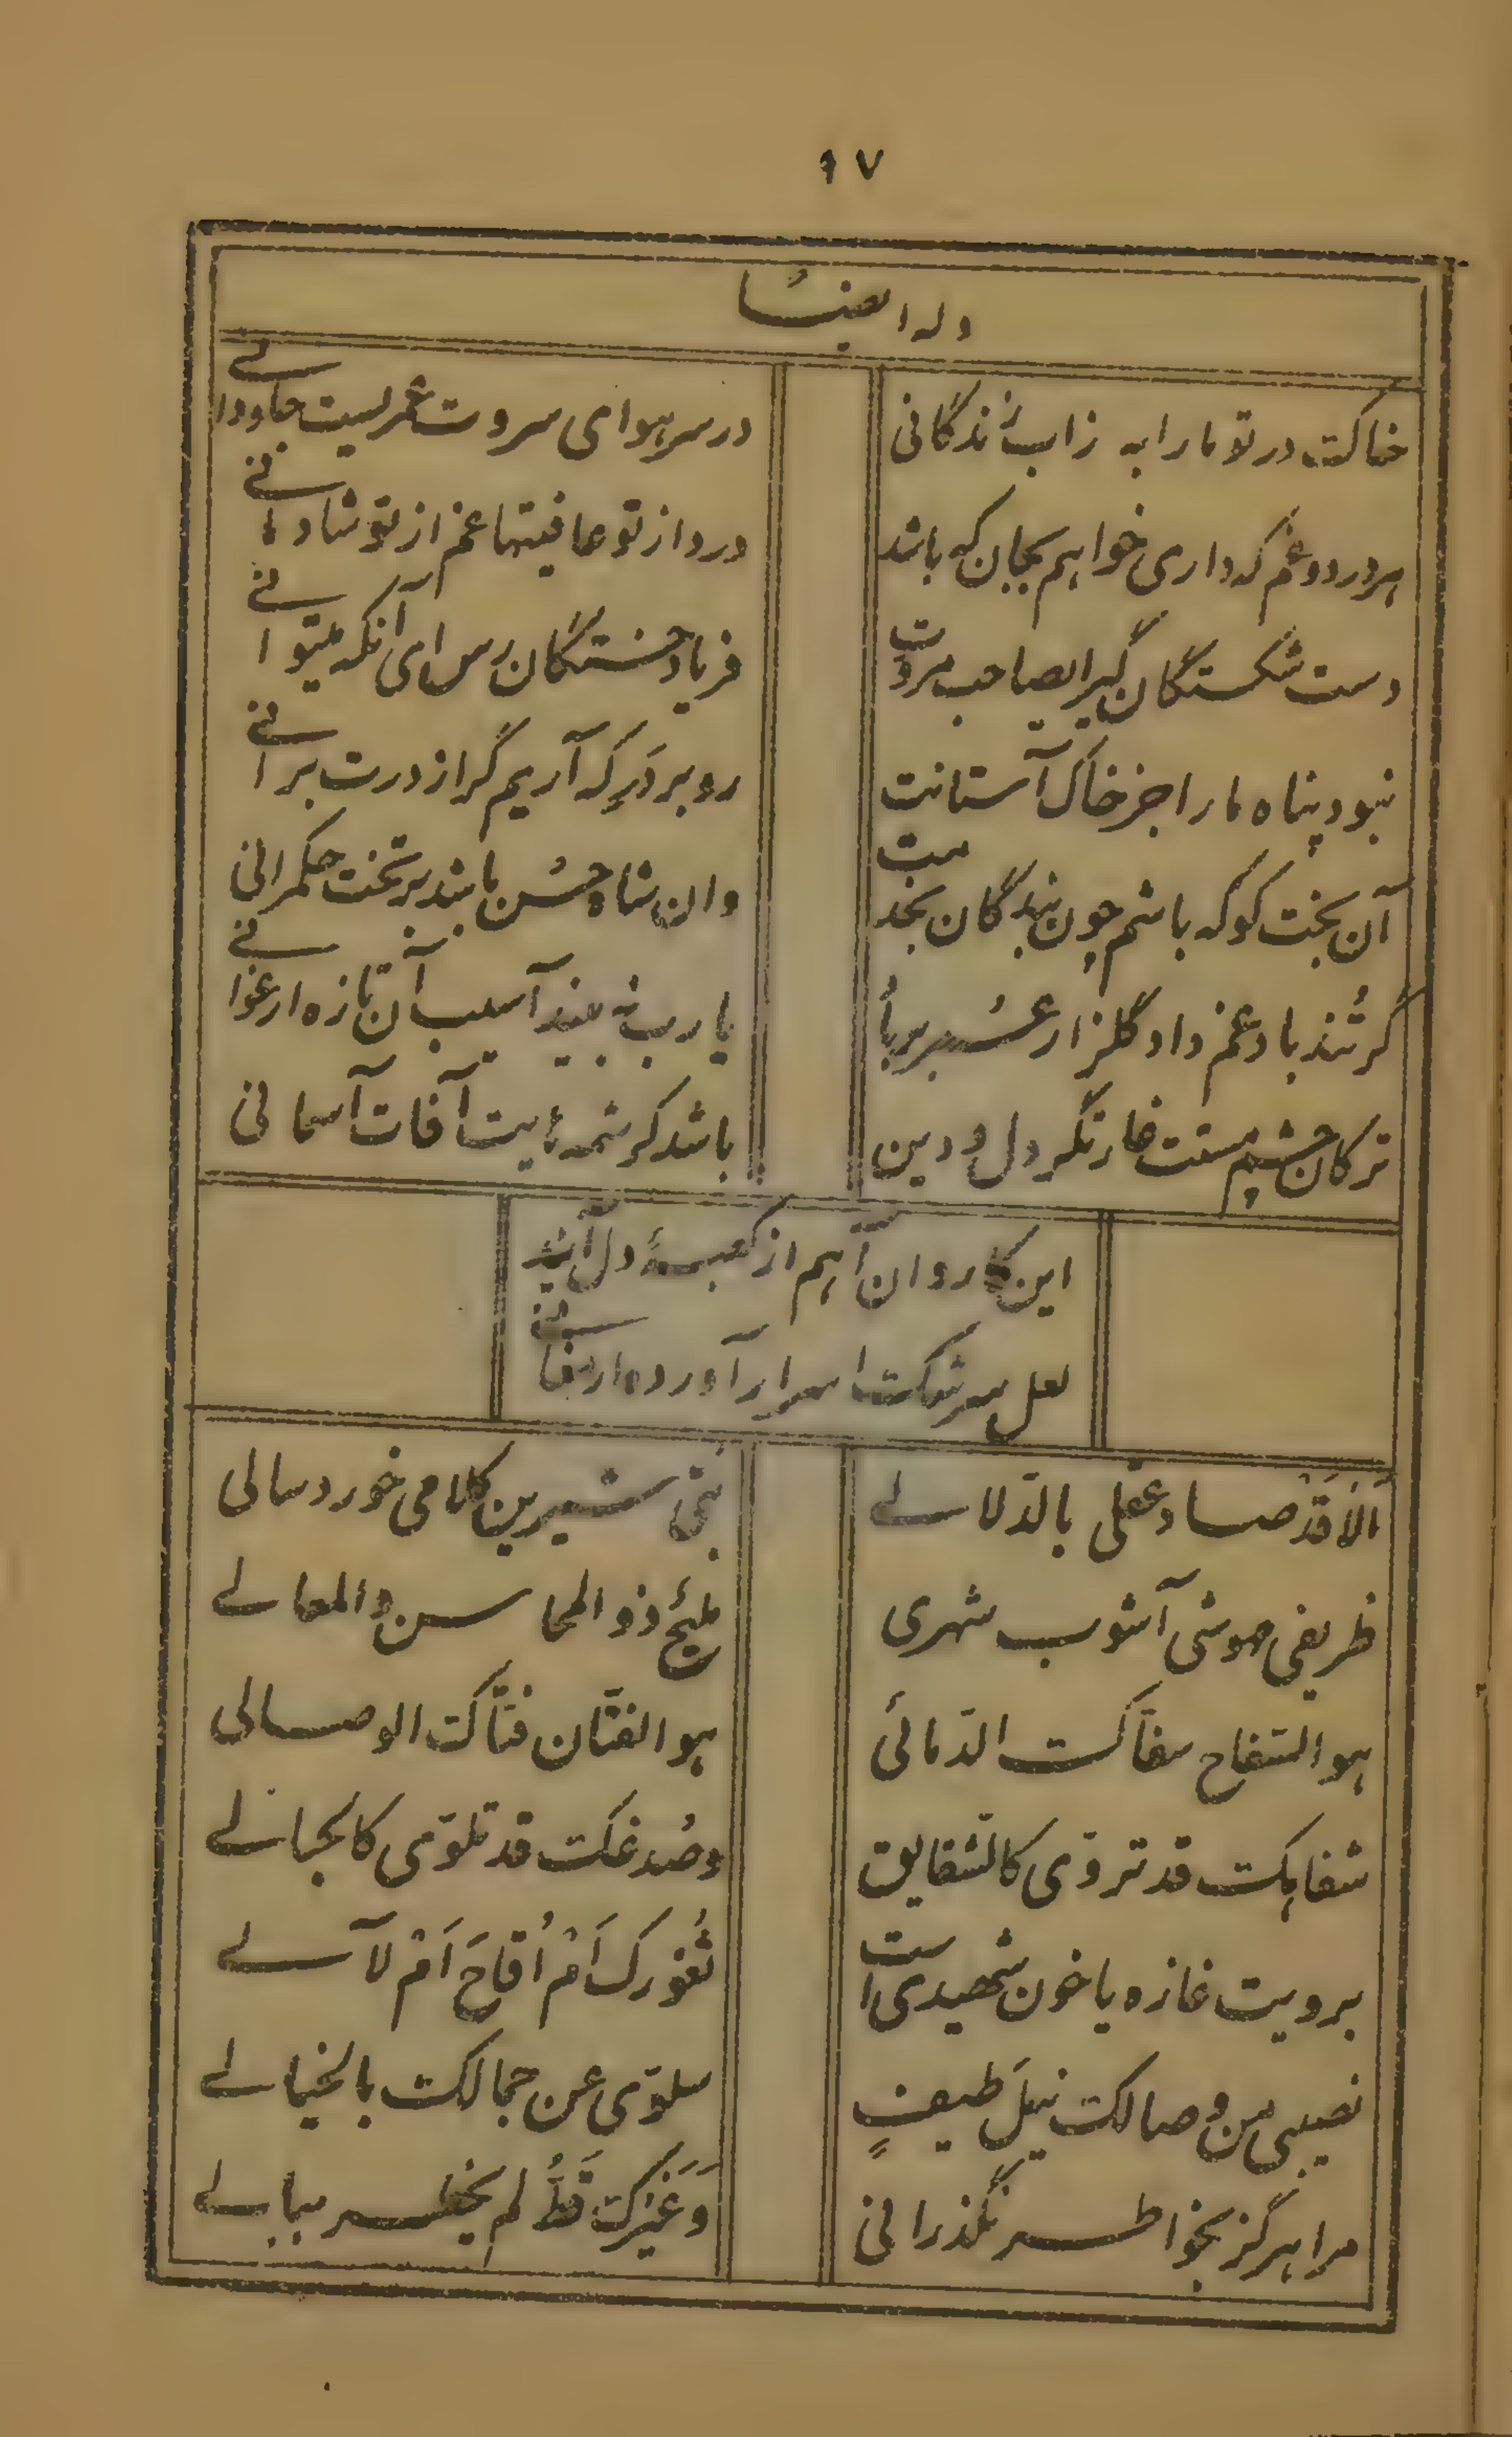 ۹۷
وله ایضاً
خاکت در تو ما را به زاب زندگانی
در سر هوای سروت عمریست جاودانے
هر درد و غم که داری خواهم بجان که باشد
درد از تو عافیتها غم از تو شادمانے
دست شکستگان گیر ایصاحب مروت
فریاد خستگان رس ای آنکه میتوانے
نبود پناه ما را جز خاک آستانت
رو بر درِ که آریم گر از درت برانے
آن بخت کو که باشم چون بندگان بخدمت
وان شاه حسن باشد بر تخت حکمرانی
گر تند باد غم داد گلزار عمر برباد
یا رب نه بیند آسیب آن تازه ارغوانے
ترکان چشم مستت غارتگر دل و دین
باشد کرشمه‌ایت آفات آسمانی
این کاروان آهم از کعبهٔ دل آید
لعل سرشکت اسرار آورده ارمغانے
اَلاَ قَدْ صاد عقلی بالدّلالے
بتی شیرین کلامی خورد سالی
ظریفی مهوشی آشوب شهری
ملیحٌ ذو المحاسن والمعالے
هو السّفاح سفاکت الدّمائی
هو الفتّان فتّاکت الوصالی
شفاهکت قد تروّی کالشّقایق
وصُدغکت قد تلوّی کالحبالے
برویت غازه یا خون شهیدی است
ثُغورک اَمْ اُقاحَ اَمْ لآلے
نصیبی من وصالکت نیلَ طیفٍ
سلوّی عن جمالکت بالخیالے
مرا هرگز بخواطر نگذرانی
وَغَیْرکت قَطُّ لم یخطر ببالے